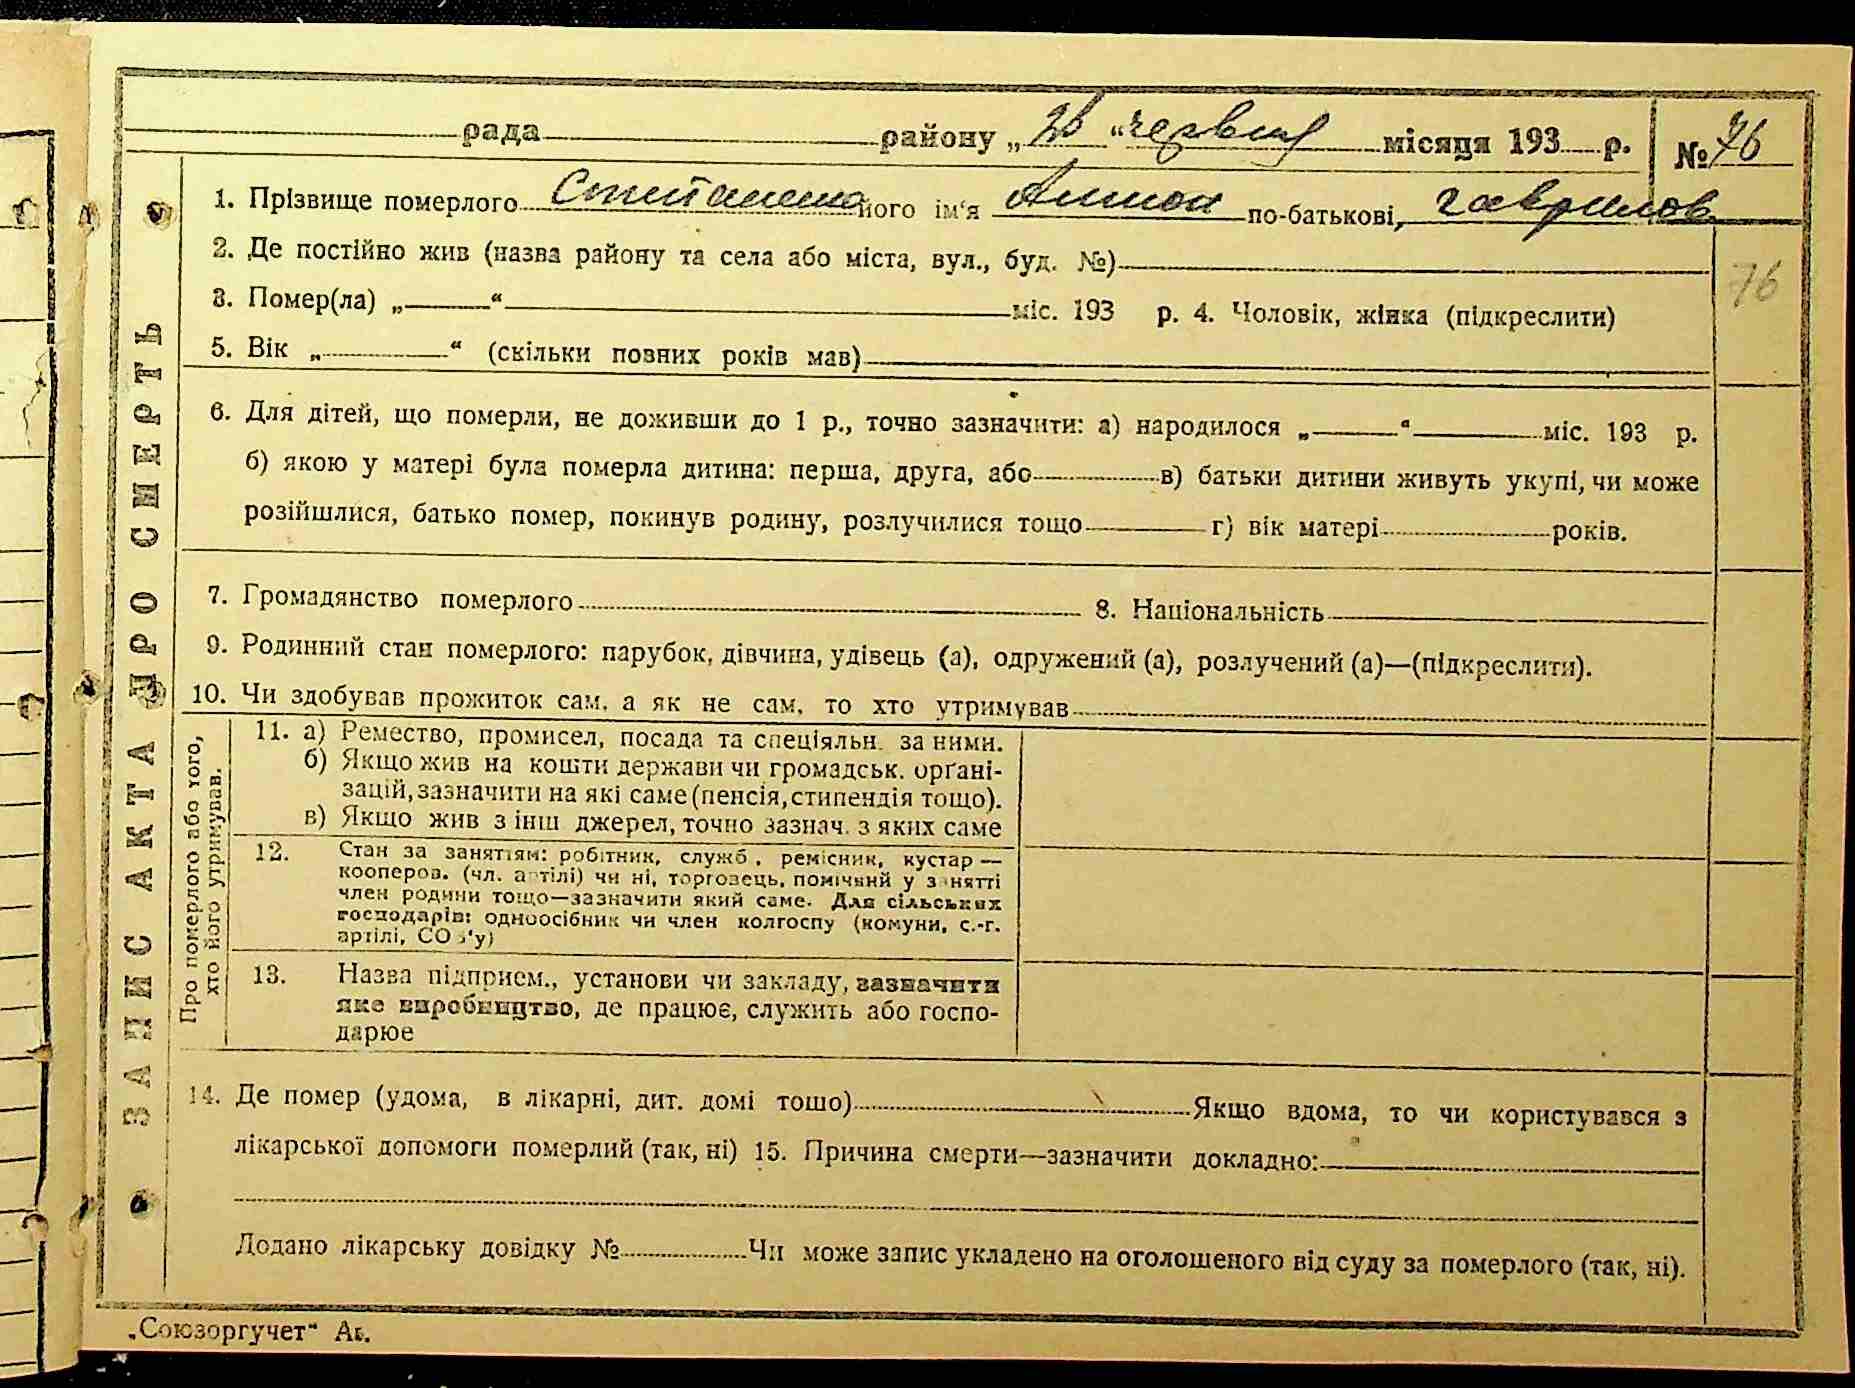 рада района „ “ червня місяця 193 р. № 76
1. Прізвище померлого його ім‘я Антон по-батькові, гаврилов
2. Де постійно жив (назва району та села або міста, вул., буд. №)
76
3. Помер(ла) „ “ міс. 193 р. 4. Чоловік, жінка (підкреслити)
5. Вік „ “ (скільки повних років мав)
6. Для дітей, що померли, не доживши до 1 р., точно зазначити: а) народилося „ “ міс. 193 р.
б) якою у матері була померла дитина: перша, друга, або в) батьки дитини живуть укупі, чи може
розійшлися, батько помер, покинув родину, розлучилися тощо г) вік матері років.
7. Громадянство померлого 8. Національність
9. Родинний стан померлого: парубок, дівчина, удівець (а), одружений (а), розлучений (а)—(підкреслити).
10. Чи здобував прожиток сам, а як не сам, то хто утримував
ЗАПИС АКТА ПРО СМЕРТЬ
Про померлого або того,
хто його утримував.
11. а) Ремество, промисел, посада та спеціяльн. за ними.
б) Якщо жив на кошти держави чи громадськ. орґані-
зацій, зазначити на які саме (пенсія, стипендія тощо).
в) Якщо жив з інш джерел, точно зазнач. з яких саме
12. Стан за заняттям: робітник, служб., ремісник, кустар —
кооперов. (чл. артілі) чи ні, торговець, помічний у занятті
член родини тощо—зазначити який саме. Для сільських
господарів: одноосібник чи член колгоспу (комуни, с.-г.
артілі, СОЗ‘у)
13. Назва підприєм., установи чи закладу, зазначити
яке виробництво, де працює, служить або госпо-
дарює
14. Де помер (удома, в лікарні, дит. домі тошо) Якщо вдома, то чи користувався з
лікарської допомоги померлий (так, ні) 15. Причина смерти—зазначити докладно:
Додано лікарську довідку № Чи може запис укладено на оголошеного від суду за померлого (так, ні).
„Союзоргучет“